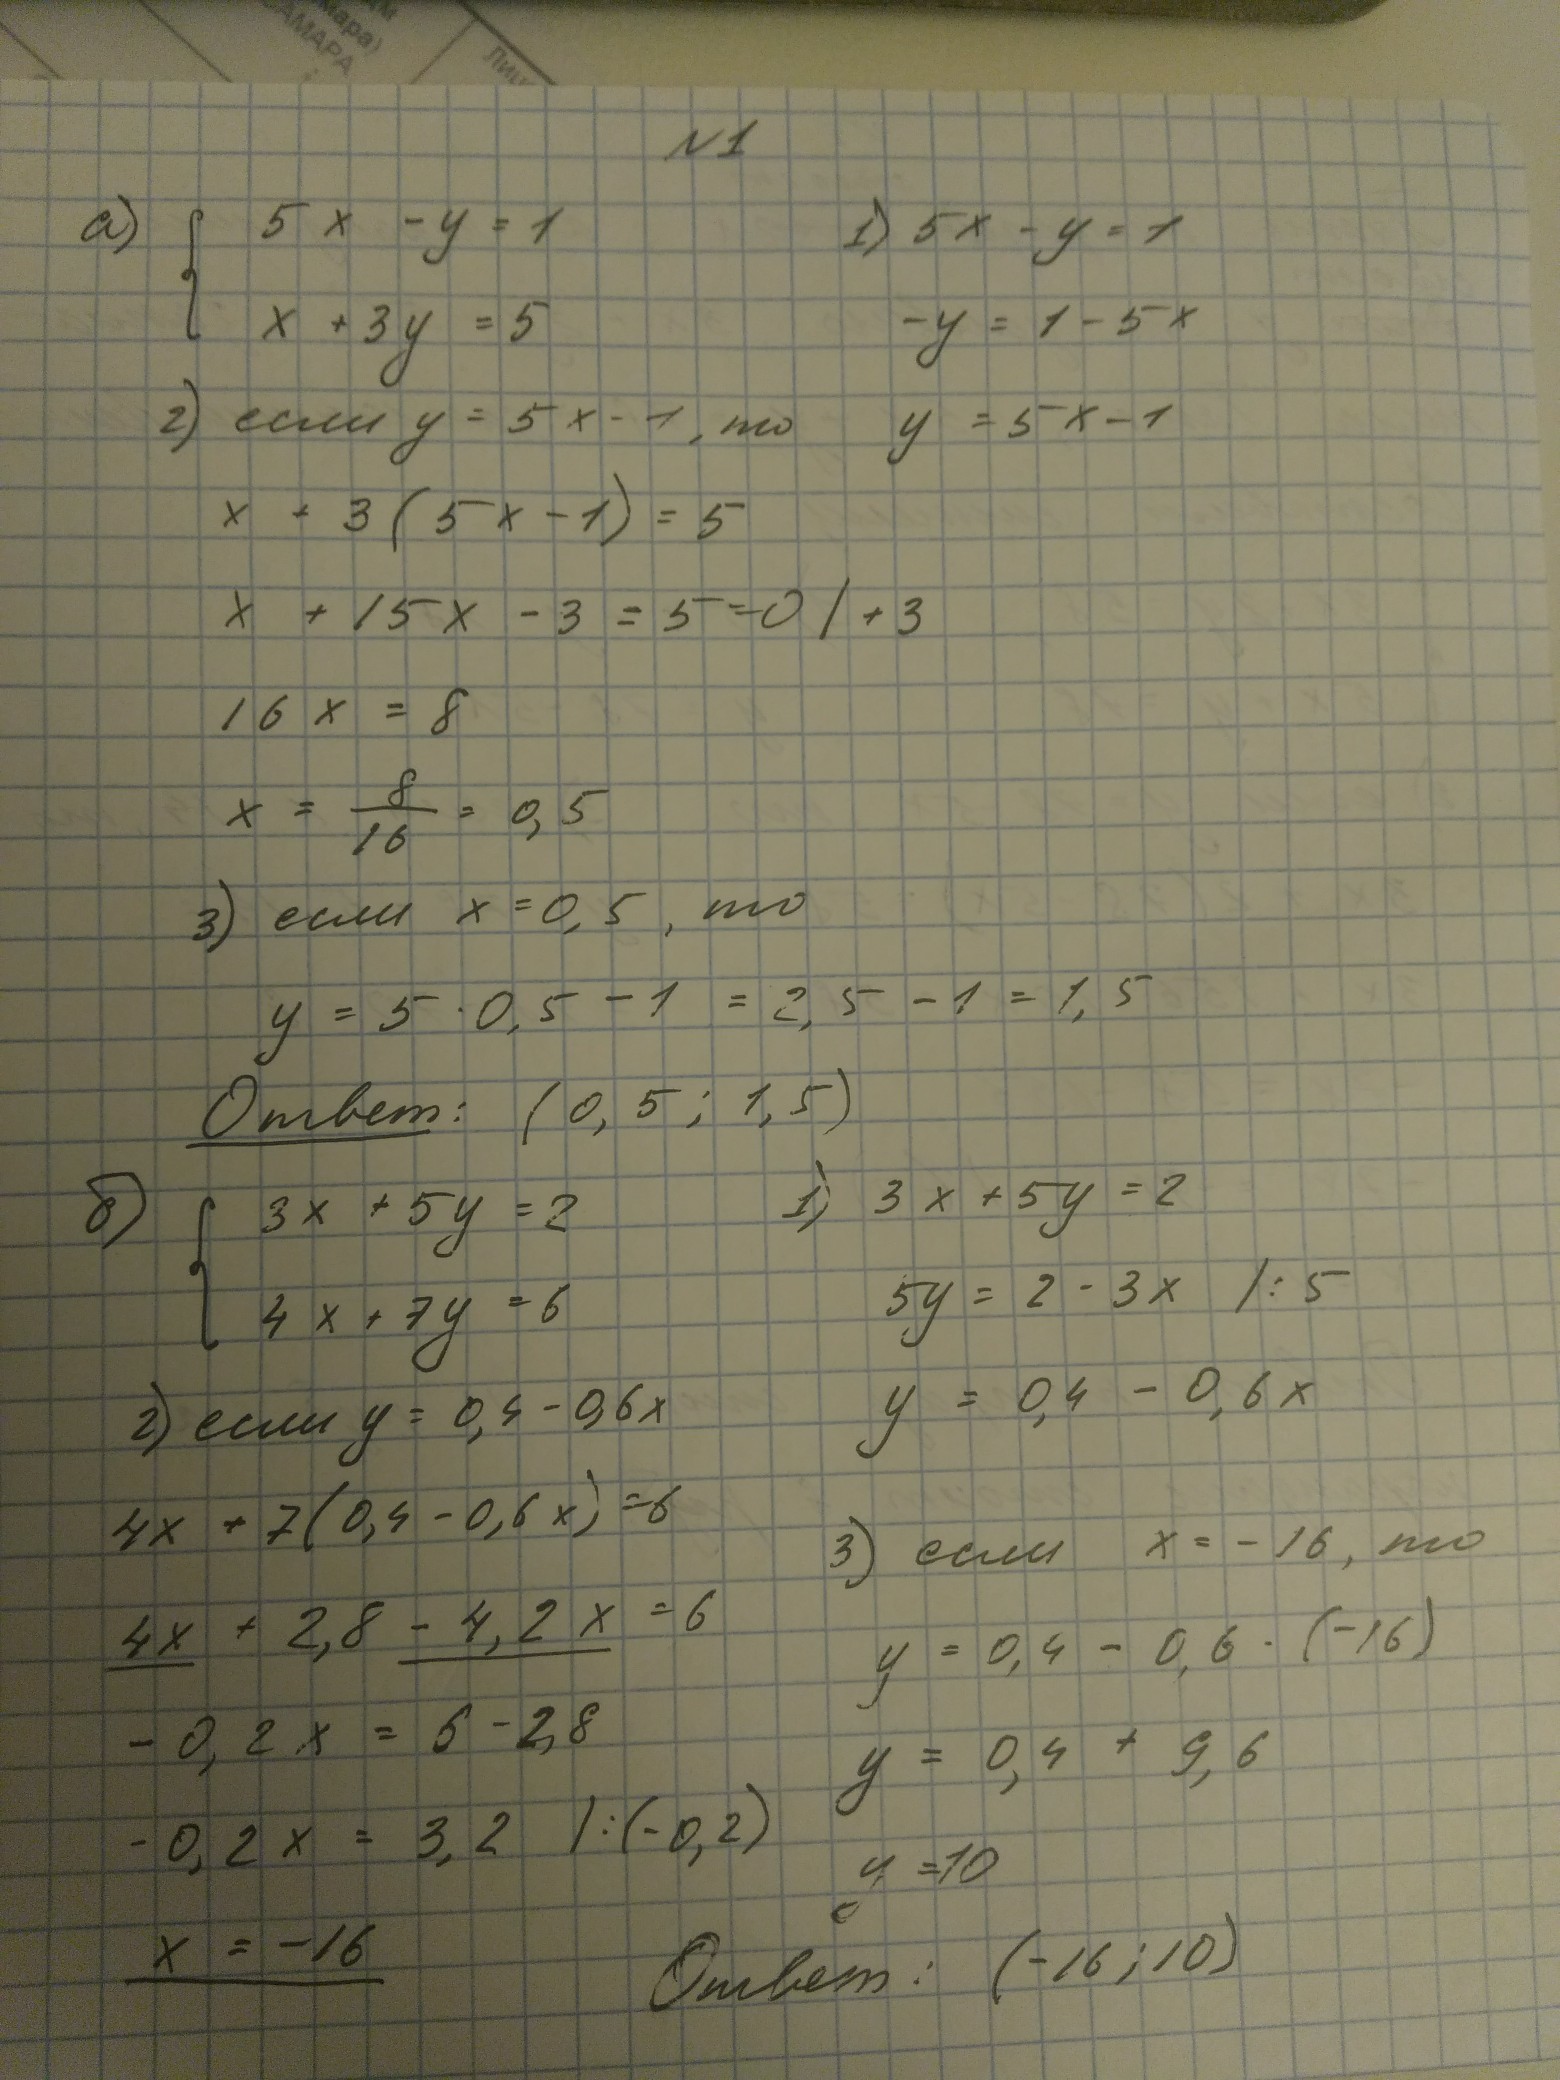 мара)
САМАРА
Лиц
N1
а) { 5x - y = 1
x + 3y = 5
1) 5x - y = 1
-y = 1 - 5x
y = 5x - 1
2) если y = 5x - 1, то
x + 3(5x - 1) = 5
x + 15x - 3 = 5 = 0 / + 3
16x = 8
x = 8/16 = 0,5
3) если x = 0,5, то
y = 5 · 0,5 - 1 = 2,5 - 1 = 1,5
Ответ: (0,5; 1,5)
б) { 3x + 5y = 2
4x + 7y = 6
1) 3x + 5y = 2
5y = 2 - 3x /: 5
y = 0,4 - 0,6x
2) если y = 0,4 - 0,6x
4x + 7(0,4 - 0,6x) = 6
4x + 2,8 - 4,2x = 6
-0,2x = 6 - 2,8
-0,2x = 3,2 /:(-0,2)
x = -16
3) если x = -16, то
y = 0,4 - 0,6 · (-16)
y = 0,4 + 9,6
y = 10
Ответ: (-16; 10)